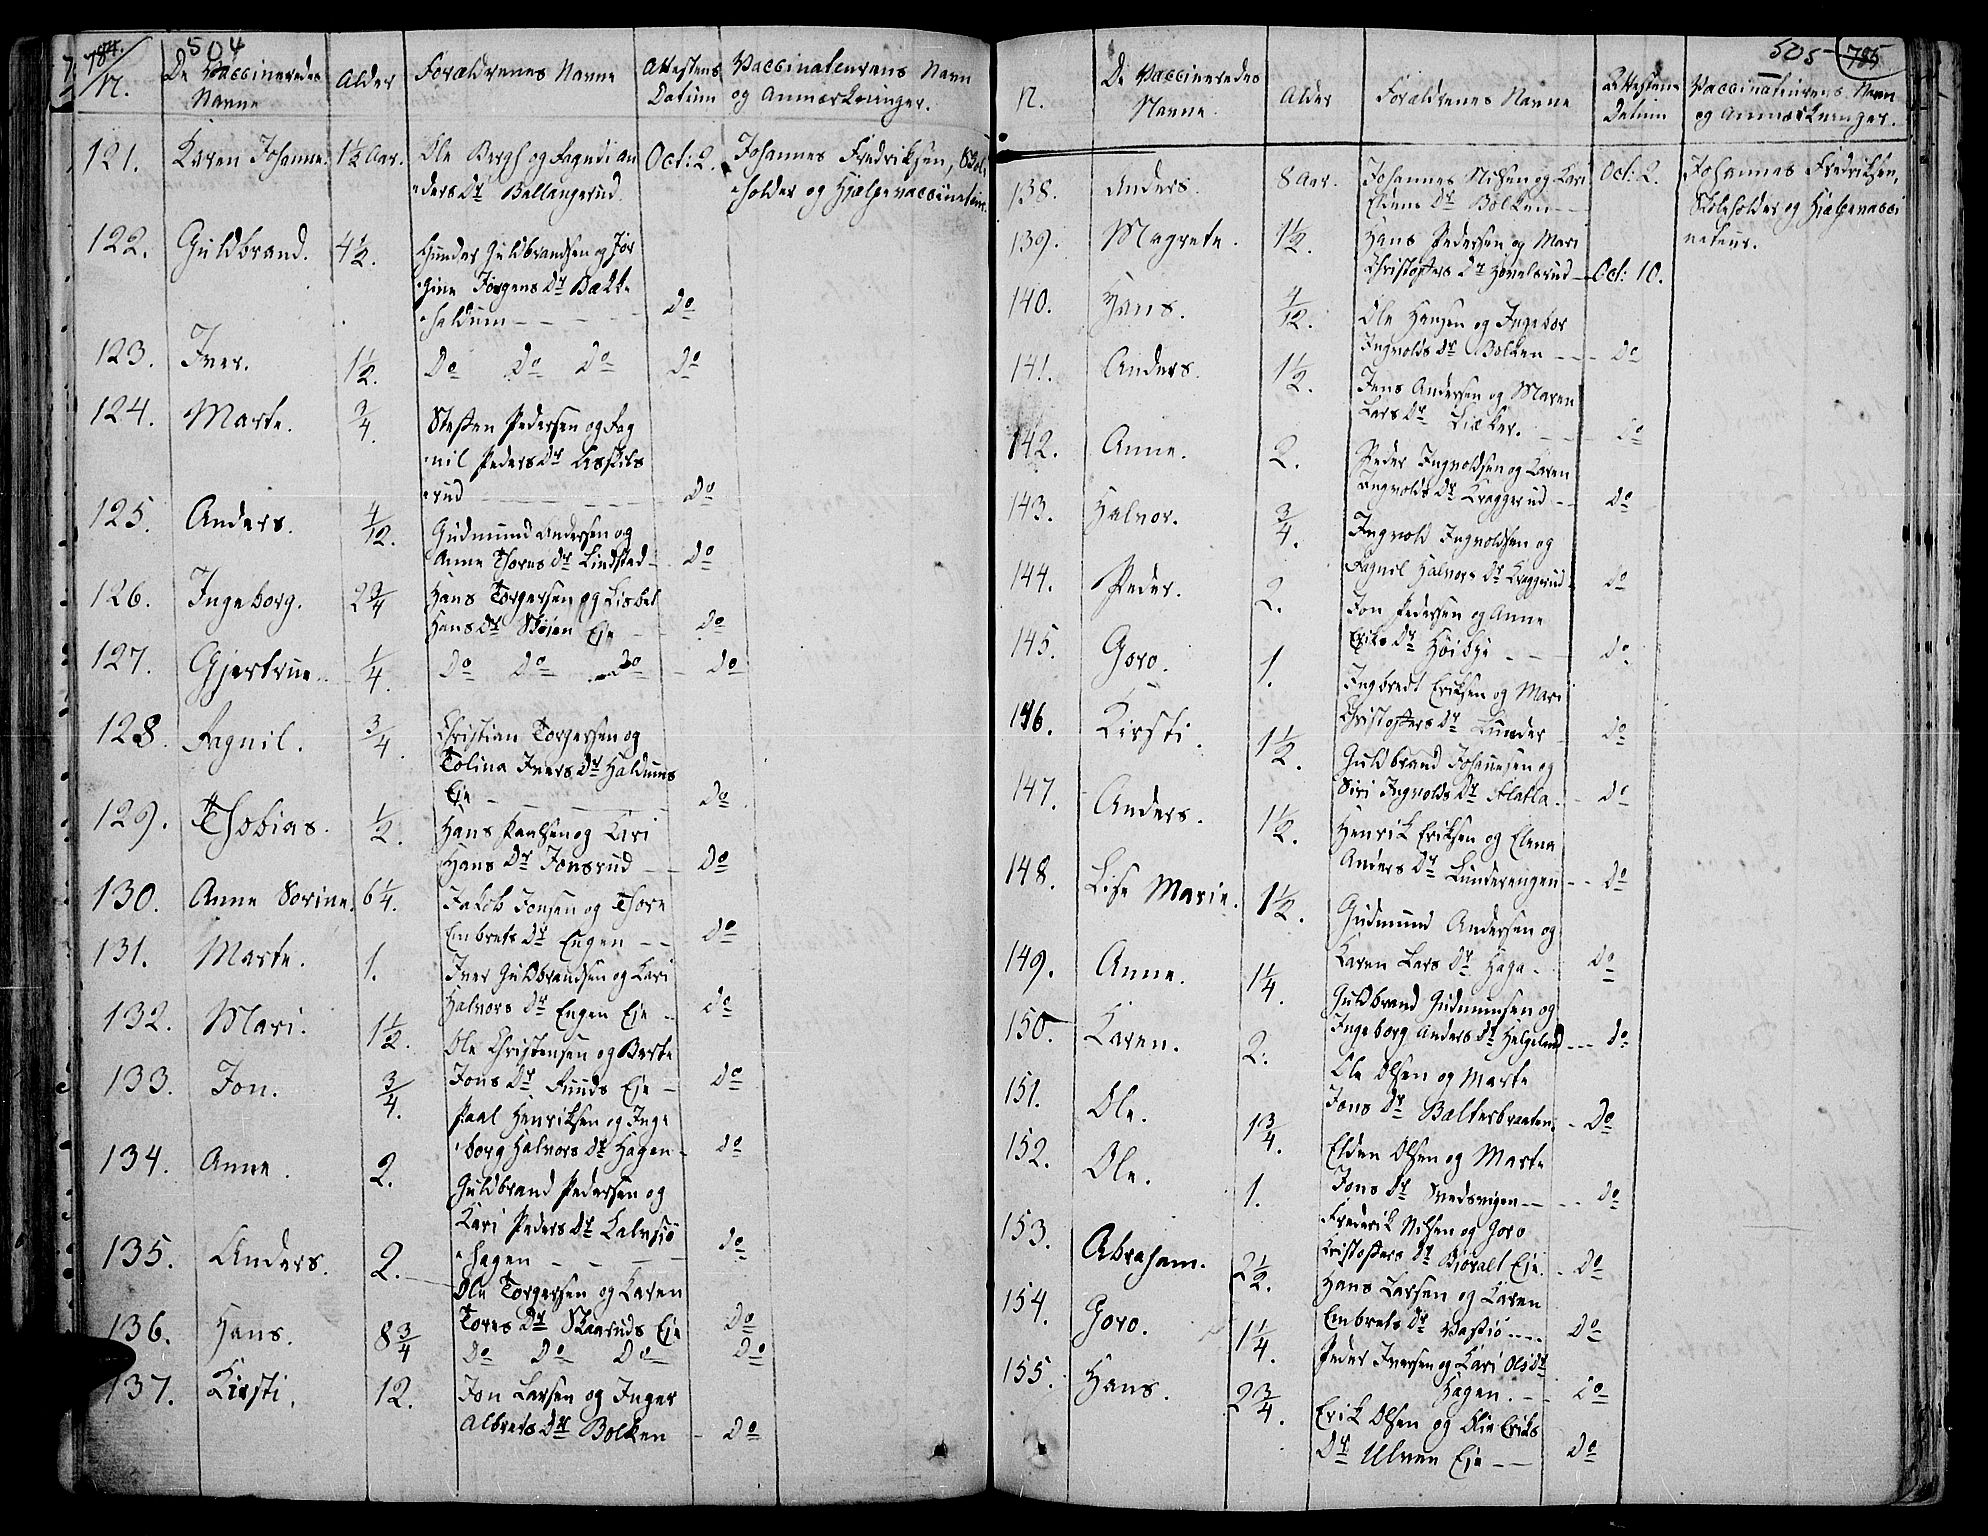 784. 504
N. De Vaccineredes Navne Alder Forældrenes Navne Attestens Datum Vaccinateurens Navn og Anmærkninger.
121. Karen Johanne. 1½ Aar. Ole Bergh og Fagndi An Oct: 2. Johannes Fredriksen, Skol
ders Dr Ballangerud. holder og Hjælpevaccinateur.
122. Guldbrand. 4½. Gunder Guldbrandsen og Jør
gine Jørgens Dr Bække
haldum Do
123. Iver. 1½. Do Do Do Do
124. Marte. 3/4. Steffen Pedersen og Fag
nil Peders Dr Asskils
rud Do
125. Anders. 4/12. Gudmund Andersen og
Anne Thores Dr Lindstad Do
126. Ingeborg. 2 3/4 Hans Torgersen og Lisbet
Hans Dr Støien Eje Do
127. Gjertrue. 1/4. Do Do Do Do
128. Fagnil. 3/4. Christian Torgersen og
Tolina Ivers Dr Haldums
Eje Do
129. Thobias. 1/2. Hans Paalsen og Kari
Hans Dr Jonsrud Do
130. Anne Sorine. 6¼. Jakob Jonsen og Thore
Embrets Dr Engen Do
131. Marte. 1. Iver Guldbrandsen og Kari
Halvors Dr Engen Eje Do
132. Mari. 1½. Ole Christensen og Berte
Jons Dr Ruuds Eje Do
133. Jon. 3/4. Paal Henriksen og Inge
borg Halvors Dr Hagen Do
134. Anne. 2. Guldbrand Pedersen og
Kari Peders Dr Kalvsiø
hagen Do
135. Anders. 2. Ole Torgersen og Karen
Tores Dr Skaaruds Eje Do
136. Hans. 8 3/4 Do Do Do Do
137. Kirsti. 12. Jon Larsen og Inger
Albrets Dr Bolken Do
505 785
N. De Vaccineredes Navne. Alder Forældrenes Navne Attestens Datum Vaccinateurens Navn og Anmærkninger.
138. Anders. 8 Aar. Johannes Nilsen og Kari Oct: 2. Johannes Fredriksen,
Eldens Dr Bolken Skoleholder og Hjælpevacci
139. Magrete. 1½. Hans Pedersen og Mari nateur.
Christoffers Dr Hovelsrud Oct: 10.
140. Hans. 4/12. Ole Hansen og Ingebor
Ingvolds Dr Bolken Do
141. Anders. 1½. Jens Andersen og Maren
Lars Dr Liæker. Do
142. Anne. 2. Peder Ingvoldsen og Karen
Ingvolds Dr Kraggerud Do
143. Halvor. 3/4. Ingvold Ingvoldsen og
Fagnil Halvors Dr Kraggerud Do
144. Peder. 2. Jon Pedersen og Anne
Eriks Dr Høibye Do
145. Goro. 1. Ingbredt Eriksen og Mari
Christoffers Dr Lunder Do
146. Kirsti. 1½. Guldbrand Johannesen og
Siri Ingvolds Dr Flatla Do
147. Anders. 1½. Henrik Eriksen og Elena
Anders Dr Lunderengen Do
148. Lise Marie. 1½. Gudmund Andersen og
Karen Lars Dr Haga Do
149. Anne. 1¼. Guldbrand Gudmunsen og
Ingeborg Anders Dr Helgeland Do
150. Karen. 2. Ole Olsen og Marte
Jons Dr Balterbraaten. Do
151. Ole. 1 3/4. Elden Olsen og Marte
Jons Dr Svedsvigen Do
152. Ole. 1. Frederik Nilsen og Goro
Kristoffers Dr Bioralt Eje. Do
153. Abraham. 2½. Hans Larsen og Karen
Embrets Dr Vastiø Do
154. Goro. 1¼. Peder Iversen og Kari Ols Dr
Hagen. Do
155. Hans. 2 3/4. Erik Olsen og Olia Eriks
Dr Ulven Eje Do